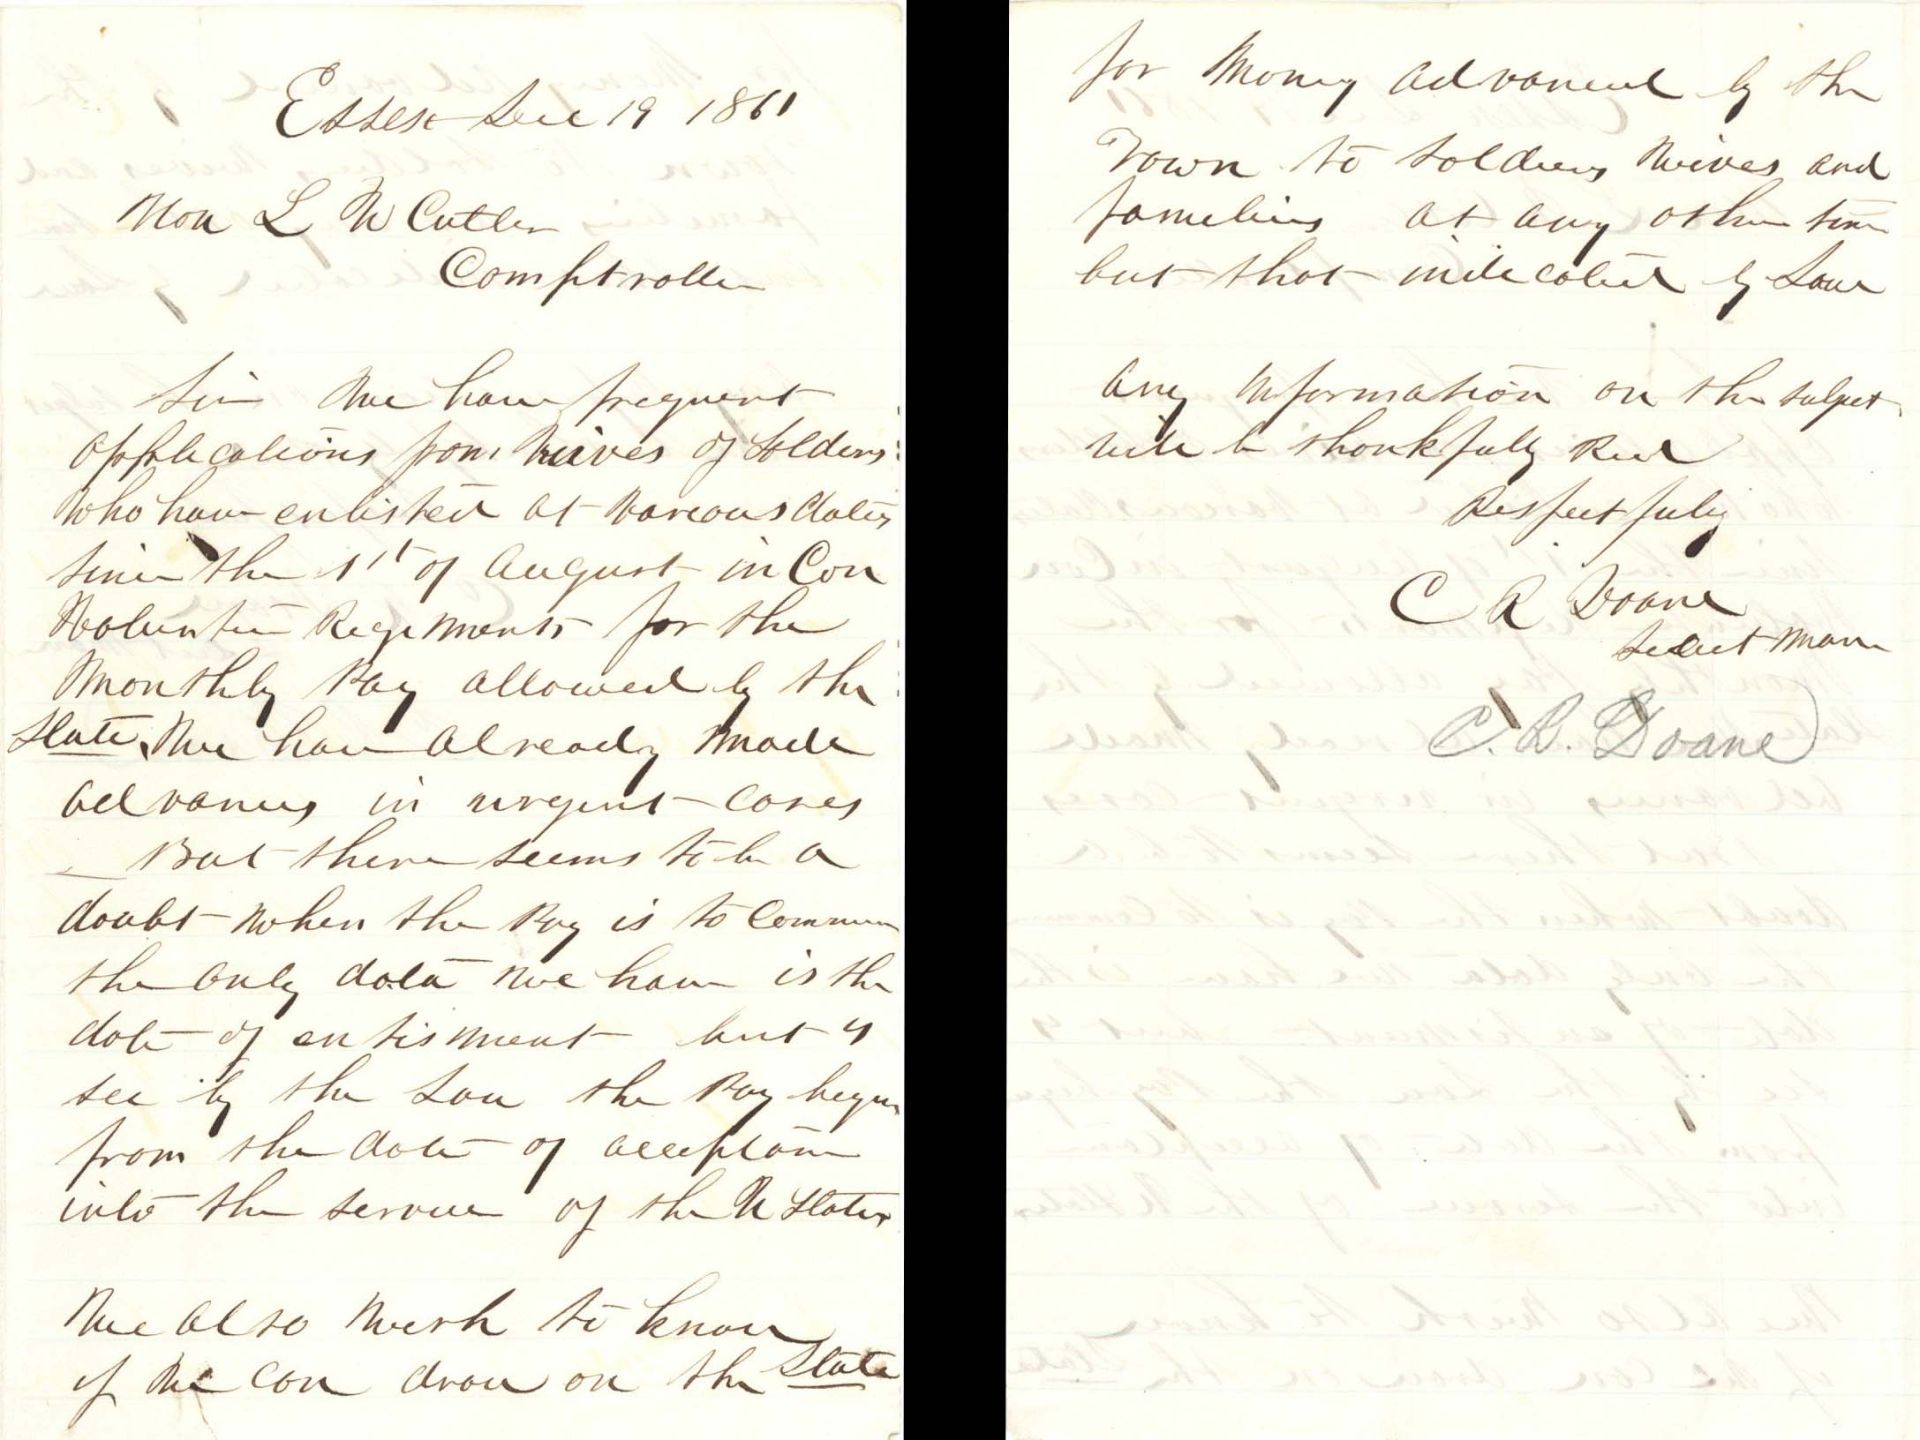 Essex Dec 19 1861
Hon L W Cutler
Comptroller
Sir We have frequent
applications from Wives of Solders
Who have enlisted at various dates
since the 1st of August in Con
Volunteer Regements for the
Monthly Pay allowed by the
State, We have already made
advances in urgent cases
But there seems to be a
doubt when the Pay is to commen
the only data we have is the
date of enlisment but I
see by the Law the Pay begins
from the date of acceptance
into the service of the U States
We also Wish to know
if We can draw on the State
for Money advanced by the
Town to soldiers Wives and
families at any other time
but that indicated by Law
Any Information on the subject
will be thankfully Recd
Respectfully
C R Doane
Select Man
C. R. Doane